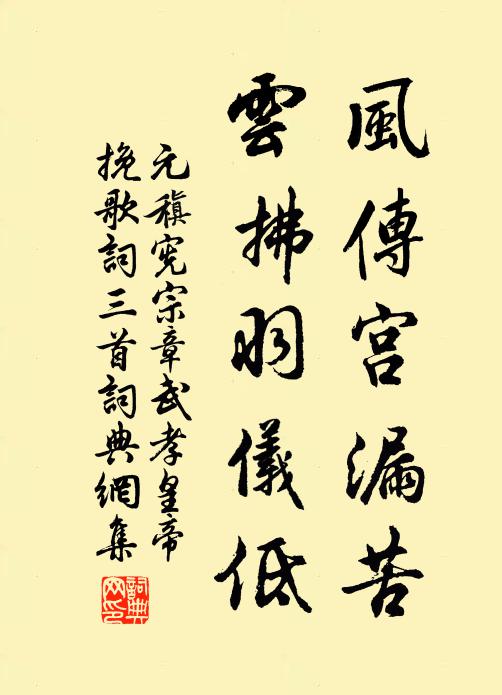 風傳宮漏苦
雲拂羽儀低
元稹憲宗章武孝皇帝
挽歌詞三首詞典網集